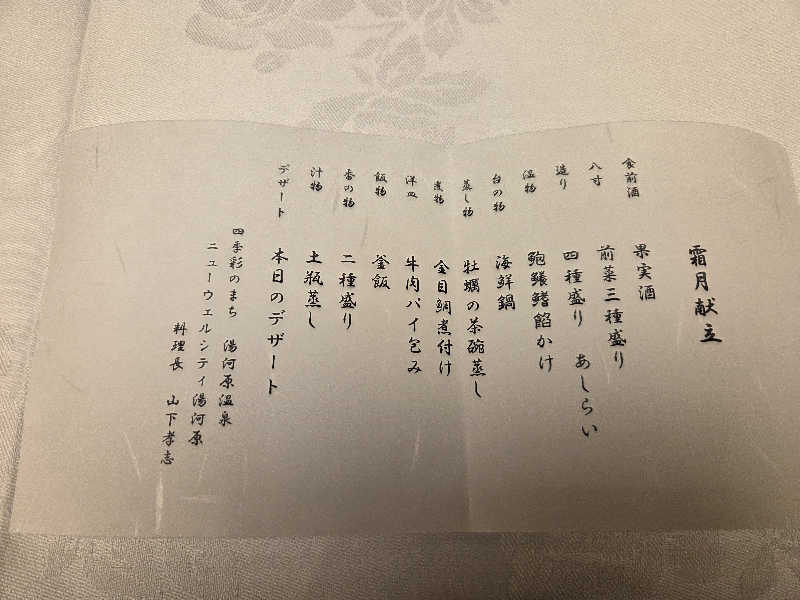 霜月献立
食前酒 果実酒
八寸 前菜三種盛り
造り 四種盛り あしらい
温物 鮑鱶鰭餡かけ
台の物 海鮮鍋
蒸し物 牡蠣の茶碗蒸し
煮物 金目鯛煮付け
洋皿 牛肉パイ包み
飯物 釜飯
香の物 二種盛り
汁物 土瓶蒸し
デザート 本日のデザート
四季彩のまち 湯河原温泉
ニューウェルシティ湯河原
料理長 山下孝志